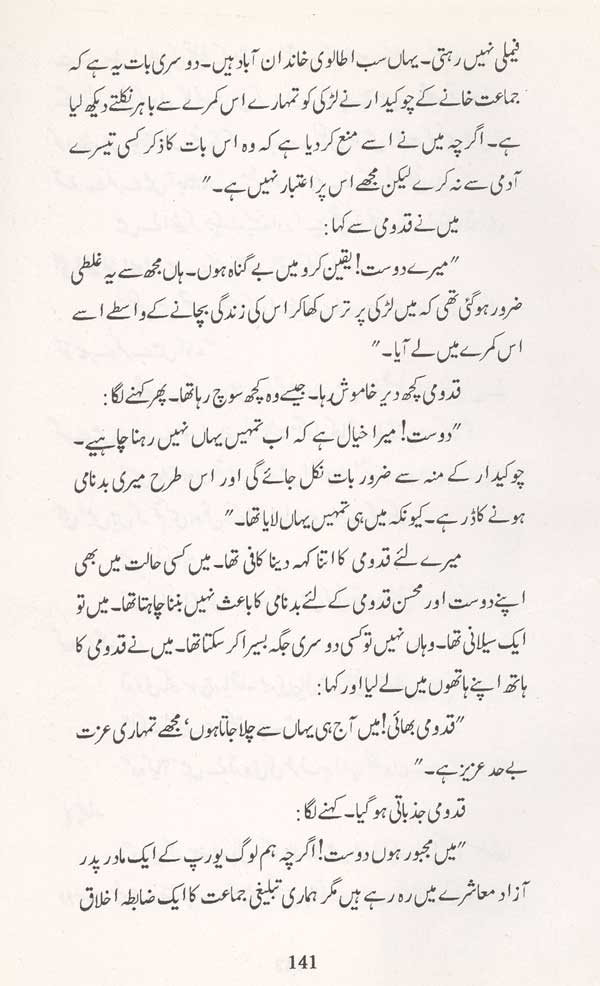 فیملی نہیں رہتی۔ یہاں سب اطالوی خاندان آباد ہیں۔ دوسری بات یہ ہے کہ
جماعت خانے کے چوکیدار نے لڑکی کو تمہارے اس کمرے سے باہر نکلتے دیکھ لیا
ہے۔ اگرچہ میں نے اسے منع کر دیا ہے کہ وہ اس بات کا ذکر کسی تیسرے
آدمی سے نہ کرے لیکن مجھے اس پر اعتبار نہیں ہے۔"
میں نے قدومی سے کہا:
"میرے دوست! یقین کرو میں بے گناہ ہوں۔ ہاں مجھ سے یہ غلطی
ضرور ہو گئی تھی کہ میں لڑکی پر ترس کھا کر اس کی زندگی بچانے کے واسطے اسے
اس کمرے میں لے آیا۔"
قدومی کچھ دیر خاموش رہا۔ جیسے وہ کچھ سوچ رہا تھا۔ پھر کہنے لگا:
"دوست! میرا خیال ہے کہ اب تمہیں یہاں نہیں رہنا چاہیے۔
چوکیدار کے منہ سے ضرور بات نکل جائے گی اور اس طرح میری بدنامی
ہونے کا ڈر ہے۔ کیونکہ میں ہی تمہیں یہاں لایا تھا۔"
میرے لئے قدومی کا اتنا کہہ دینا کافی تھا۔ میں کسی حالت میں بھی
اپنے دوست اور محسن قدومی کے لئے بدنامی کا باعث نہیں بننا چاہتا تھا۔ میں تو
ایک سیلانی تھا۔ وہاں نہیں تو کسی دوسری جگہ بسیرا کر سکتا تھا۔ میں نے قدومی کا
ہاتھ اپنے ہاتھوں میں لے لیا اور کہا:
"قدومی بھائی! میں آج ہی یہاں سے چلا جاتا ہوں' مجھے تمہاری عزت
بے حد عزیز ہے۔"
قدومی جذباتی ہو گیا۔ کہنے لگا:
"میں مجبور ہوں دوست! اگرچہ ہم لوگ یورپ کے ایک مادر پدر
آزاد معاشرے میں رہ رہے ہیں مگر ہماری تبلیغی جماعت کا ایک ضابطہ اخلاق
141